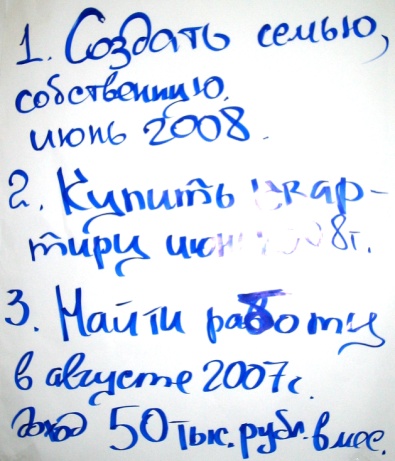 1. Создать семью,
собственную.
июнь 2008.
2. Купить квар-
тиру июнь 2008г.
3. Найти работу
в августе 2007г.
Доход 50 тыс. рубл. в мес.